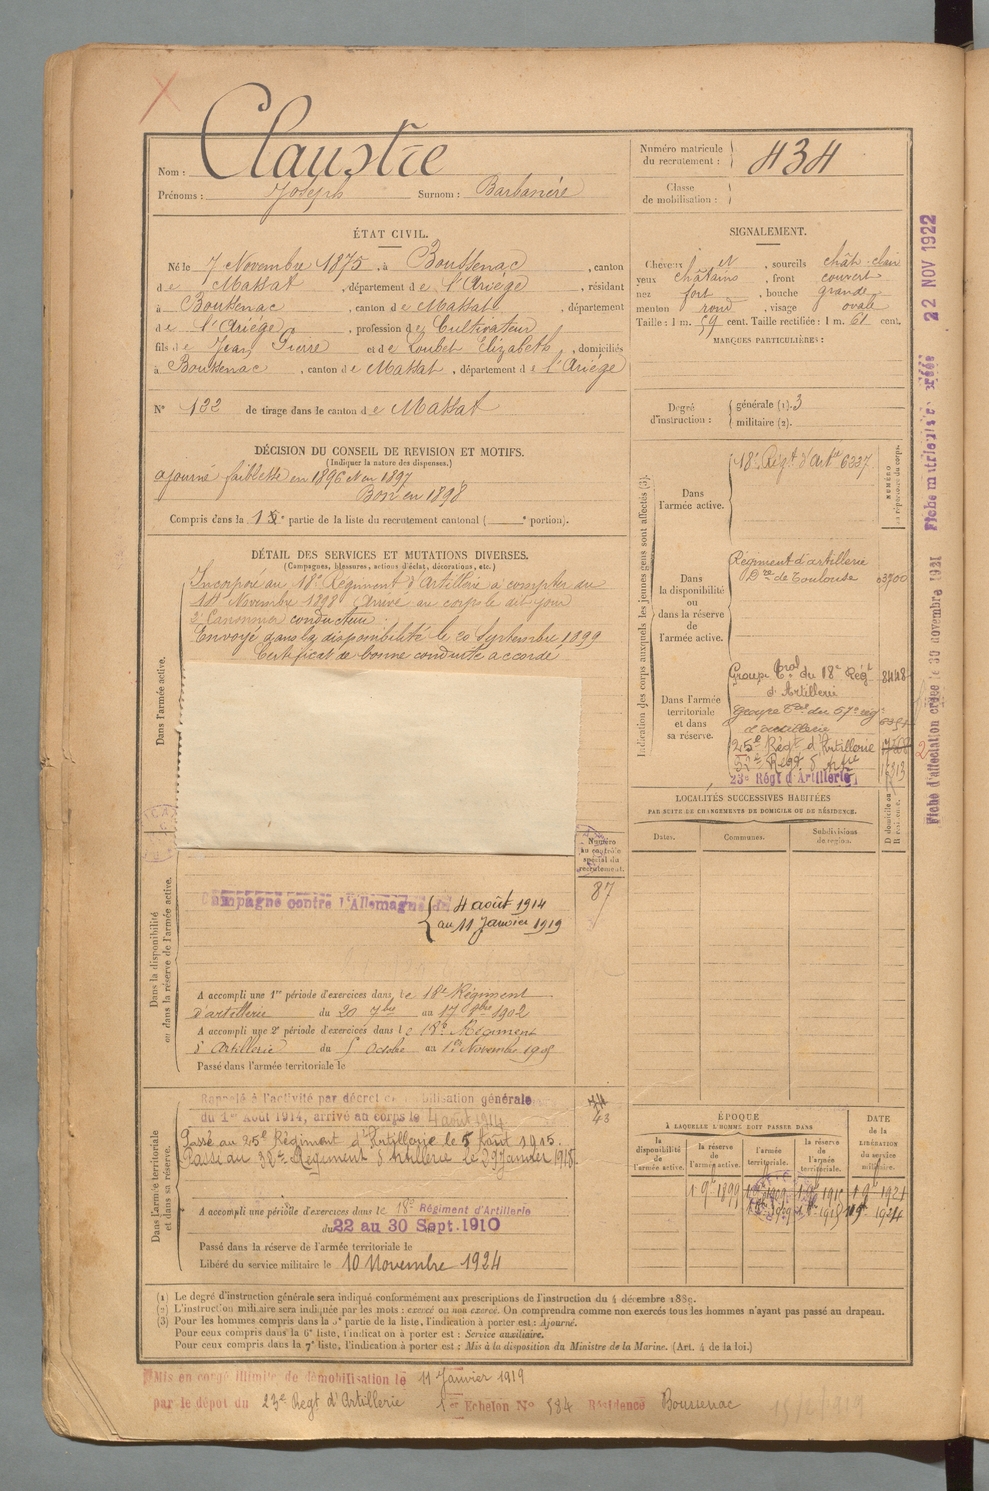 Claustre
Nom :
Prénoms : Joseph Surnom : Barbanère
Numéro matricule du recrutement : 434
Classe de mobilisation :
ÉTAT CIVIL.
Né le 7 Novembre 1875, à Boussenac, canton
de Massat, département de l'Ariège, résidant
à Boussenac, canton de Massat, département
de l'Ariège, profession de Cultivateur
fils de Jean Pierre et de Loubet Elizabeth, domiciliés
à Boussenac, canton de Massat, département de l'Ariège
N° 122 de tirage dans le canton de Massat
SIGNALEMENT.
Cheveux et, sourcils chât-clair
yeux châtains, front couvert
nez fort, bouche grande
menton rond, visage ovale
Taille : 1 m. 59 cent. Taille rectifiée : 1 m. 61 cent.
MARQUES PARTICULIÈRES :
Degré d'instruction : générale (1). 3
militaire (2).
DÉCISION DU CONSEIL DE REVISION ET MOTIFS.
(Indiquer la nature des dispenses.)
ajourné faiblesse en 1896 et en 1897
Bon en 1898
Compris dans la partie de la liste du recrutement cantonal ( portion).
DÉTAIL DES SERVICES ET MUTATIONS DIVERSES.
(Campagnes, blessures, actions d'éclat, décorations, etc.)
Dans l'armée active.
Incorporé au 18e Régiment d'Artillerie à compter du
14 Novembre 1898 Arrivé au corps le dit jour
2e Canonnier conducteur
Envoyé dans la disponibilité le 20 Septembre 1899
Certificat de bonne conduite accordé
Numéro au contrôle spécial du recrutement.
87
Dans la disponibilité ou dans la réserve de l'armée active.
Campagne contre l'Allemagne du 4 août 1914
au 11 Janvier 1919
A accompli une 1re période d'exercices dans le 18e Régiment
d'artillerie du 20 7bre au 17 8bre 1902
A accompli une 2e période d'exercices dans le 18e Régiment
d'Artillerie du Octobre au 1er Novembre 1905
Passé dans l'armée territoriale le
Dans l'armée territoriale et dans sa réserve.
Rappelé à l'activité par décret de mobilisation générale
du 1er Août 1914, arrivé au corps le 4 août 1914
Passé au 25e Régiment d'Artillerie le 5 Août 1915.
Passé au Régiment d'Artillerie le 29 Janvier 1918.
43
A accompli une période d'exercices dans le 18e Régiment d'Artillerie
du 22 au 30 Sept. 1910
Passé dans la réserve de l'armée territoriale le
Libéré du service militaire le 10 Novembre 1924
Indication des corps auxquels les jeunes gens sont affectés (3).
NUMÉRO au répertoire du corps.
Dans l'armée active.
18e Régt d'Artie 6337
Dans la disponibilité ou dans la réserve de l'armée active.
Régiment d'artillerie
de Toulouse 03700
Dans l'armée territoriale et dans sa réserve.
Groupe Tal du 18e Régt 8448
d'Artillerie
Groupe du 57e rég
d'artillerie
25e Régt d'Artillerie
Régt d'Artie
23e Régt d'Artillerie
LOCALITÉS SUCCESSIVES HABITÉES
PAR SUITE DE CHANGEMENTS DE DOMICILE OU DE RÉSIDENCE.
Dates. Communes. Subdivisions de région. D domicile ou R résidence.
ÉPOQUE
À LAQUELLE L'HOMME DOIT PASSER DANS
la disponibilité de l'armée active. la réserve de l'armée active. l'armée territoriale. la réserve de l'armée territoriale.
DATE de la LIBÉRATION du service militaire.
Fiche matricule créée 22 NOV 1922
Fiche d'affectation créée le 30 novembre 1921
(1) Le degré d'instruction générale sera indiqué conformément aux prescriptions de l'instruction du 4 décembre 1889.
(2) L'instruction militaire sera indiquée par les mots : exercé ou non exercé. On comprendra comme non exercés tous les hommes n'ayant pas passé au drapeau.
(3) Pour les hommes compris dans la 5e partie de la liste, l'indication à porter est : Ajourné.
Pour ceux compris dans la 6e liste, l'indication à porter est : Service auxiliaire.
Pour ceux compris dans la 7e liste, l'indication à porter est : Mis à la disposition du Ministre de la Marine. (Art. 4 de la loi.)
Mis en congé illimité de démobilisation le 11 Janvier 1919
par le dépôt du 23e Régt d'Artillerie 1er Echelon N° 584 Résidence Boussenac